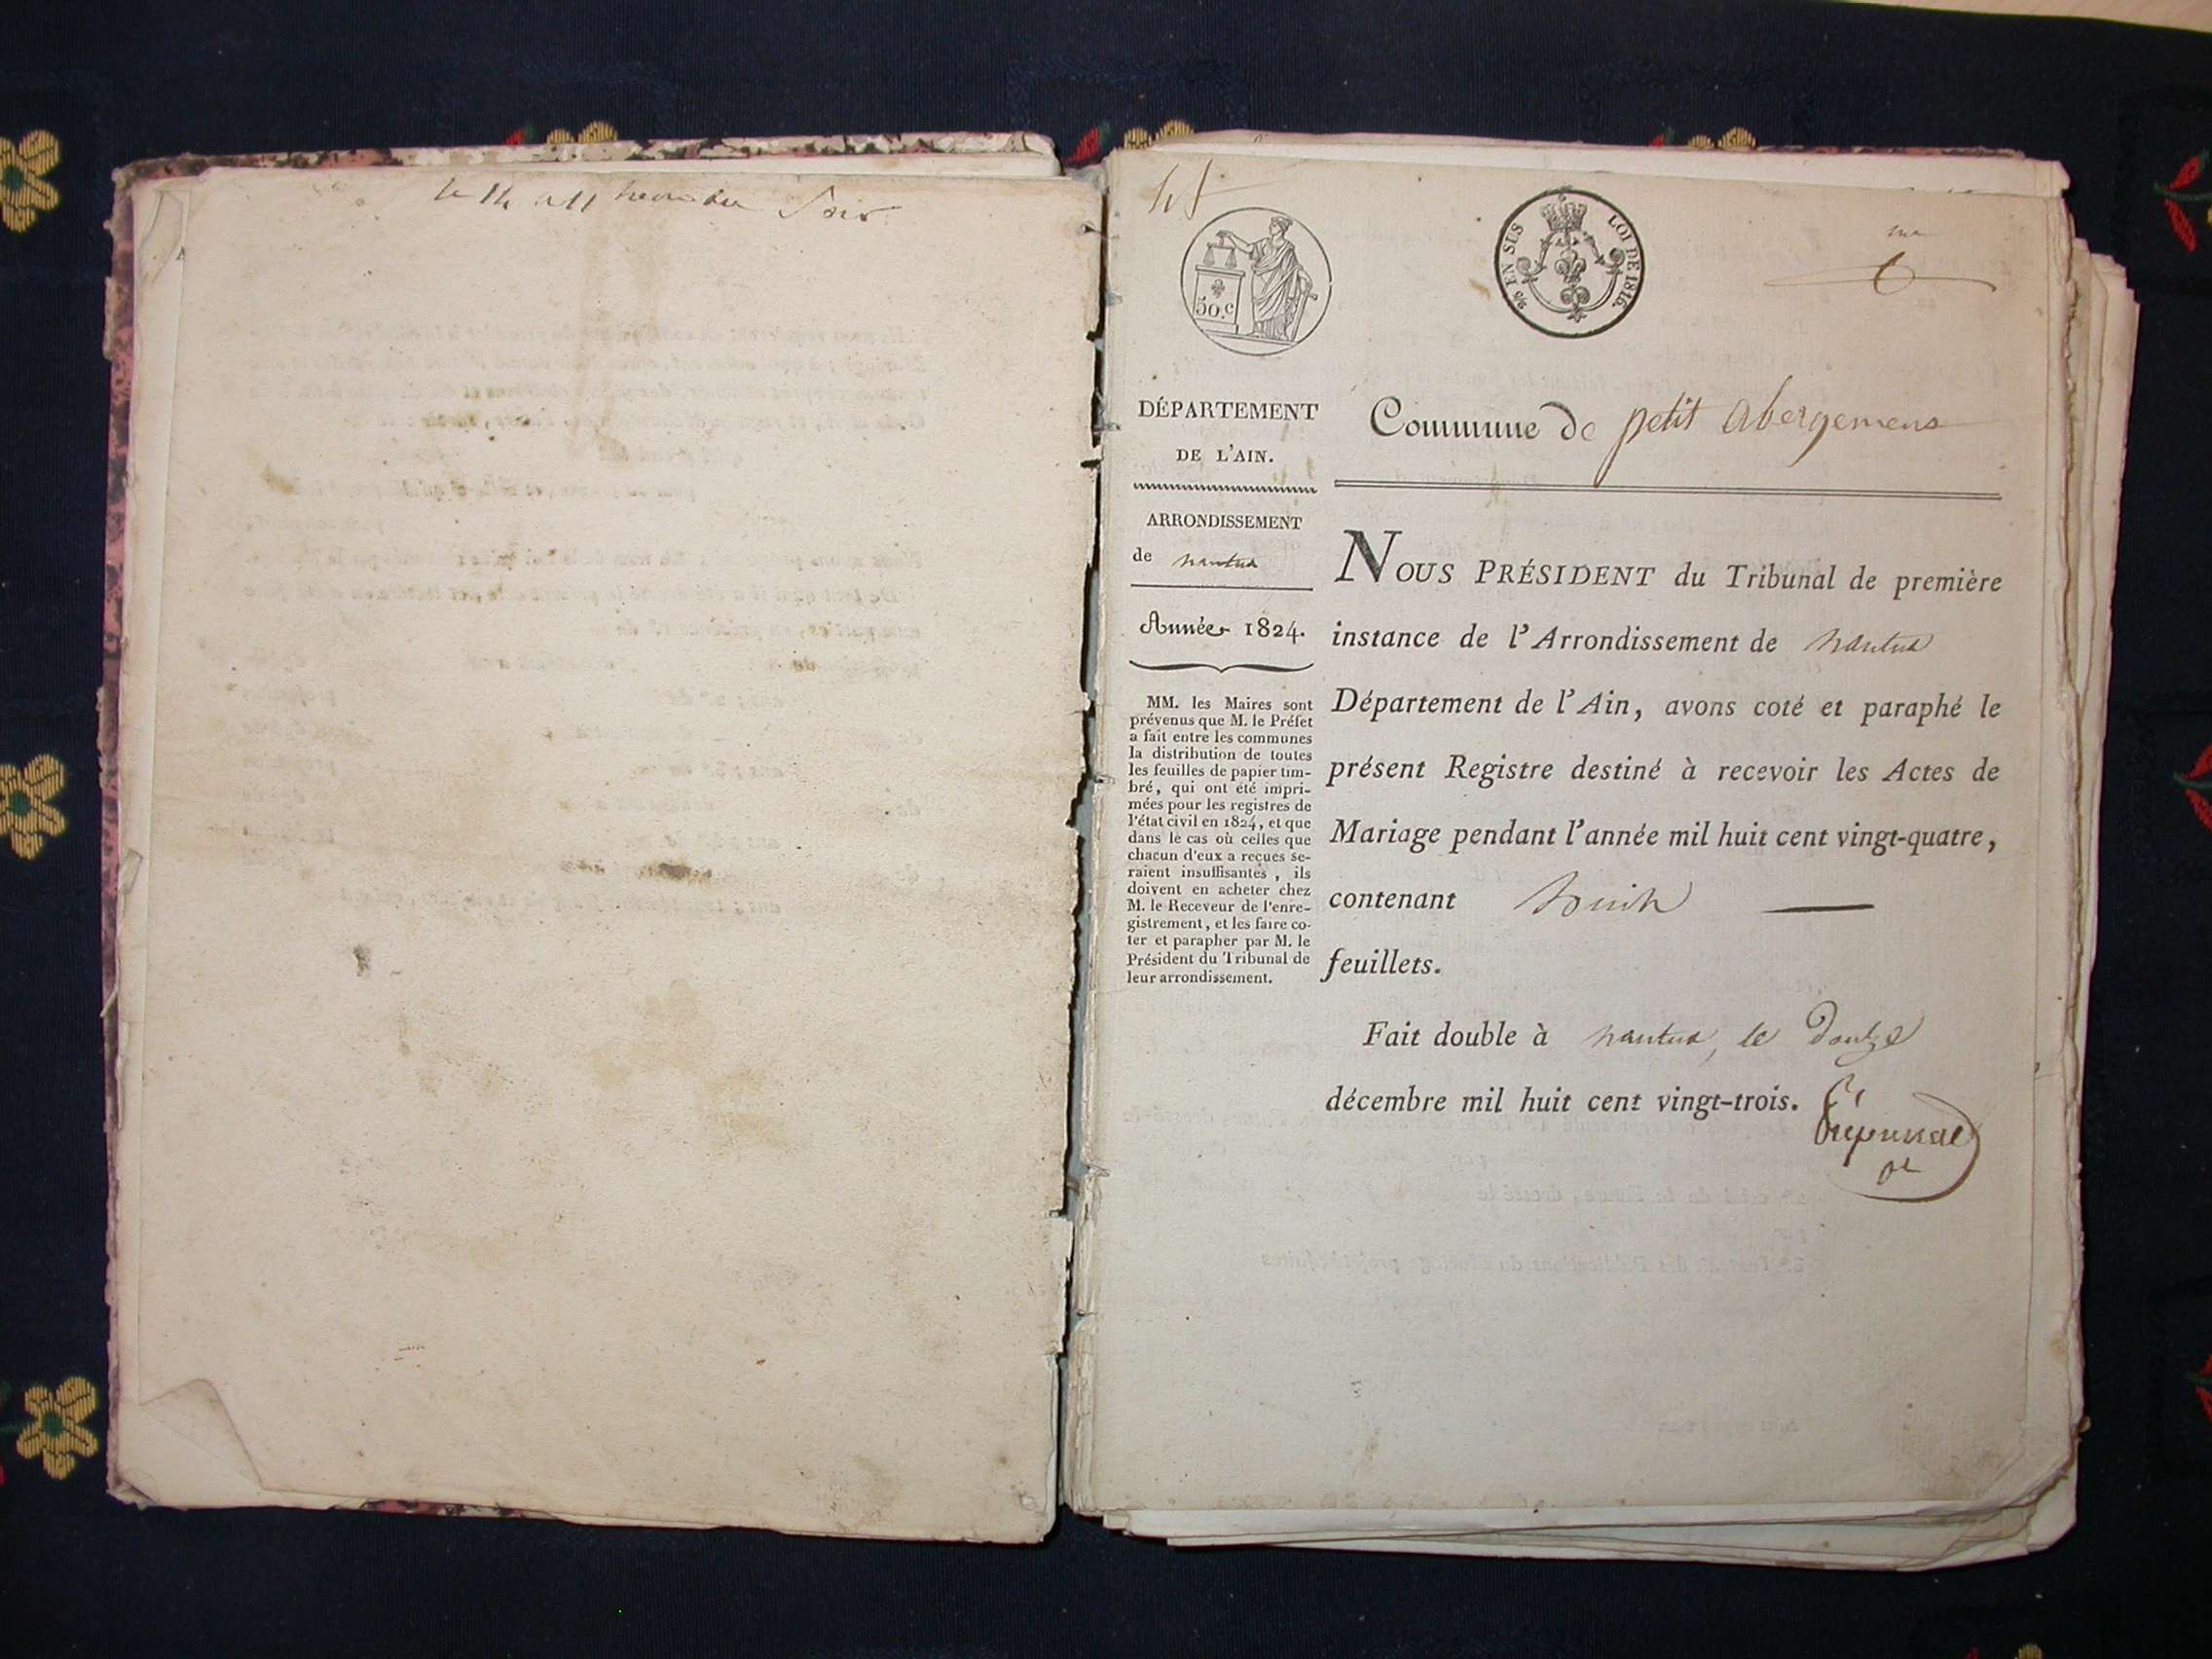 le 14 a 11 heures du Soir
50.c
% EN SUS LOI DE 1816.
DÉPARTEMENT
DE L'AIN.
ARRONDISSEMENT
de nantua
Année 1824.
MM. les Maires sont
prévenus que M. le Préfet
a fait entre les communes
la distribution de toutes
les feuilles de papier tim-
bré, qui ont été impri-
mées pour les registres de
l'état civil en 1824, et que
dans le cas où celles que
chacun d'eux a reçues se-
raient insuffisantes, ils
doivent en acheter chez
M. le Receveur de l'enre-
gistrement, et les faire co-
ter et parapher par M. le
Président du Tribunal de
leur arrondissement.
Commune de petit abergemens
NOUS PRÉSIDENT du Tribunal de première
instance de l'Arrondissement de nantua
Département de l'Ain, avons coté et paraphé le
présent Registre destiné à recevoir les Actes de
Mariage pendant l'année mil huit cent vingt-quatre,
contenant huit
feuillets.
Fait double à nantua, le douze
décembre mil huit cent vingt-trois.